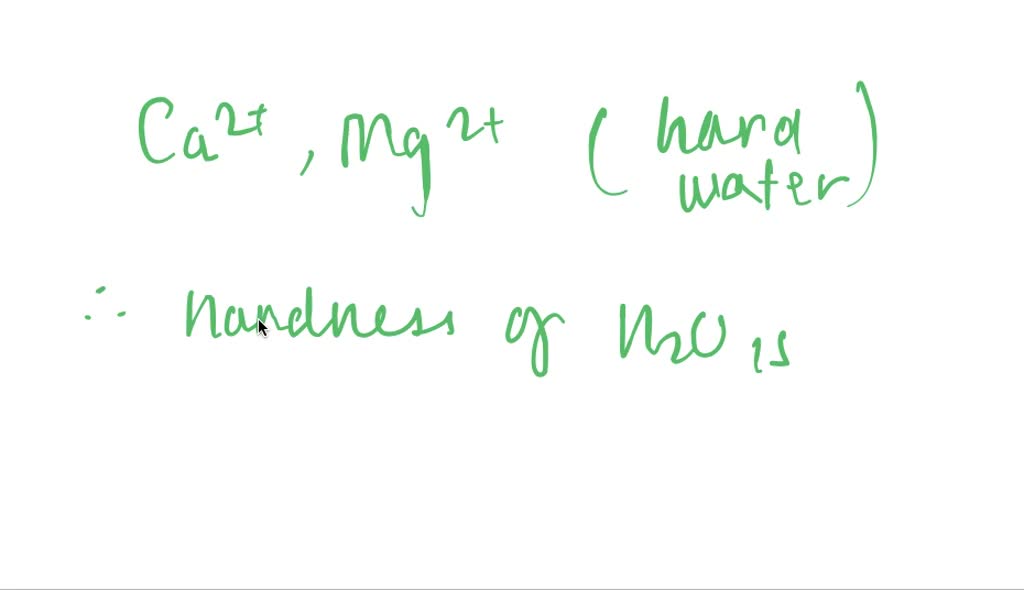 Ca²⁺, Mg²⁺ (hard
water)
∴ Hardness of H₂O is